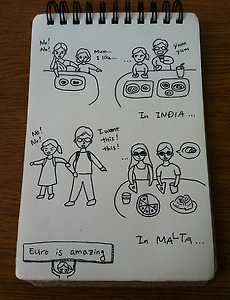 No!
No!
Mmm..
I like...
...
Yum
Yum
In INDIA ...
No!
No!
I want
this!
this!
...
In MALTA ...
Euro is amazing